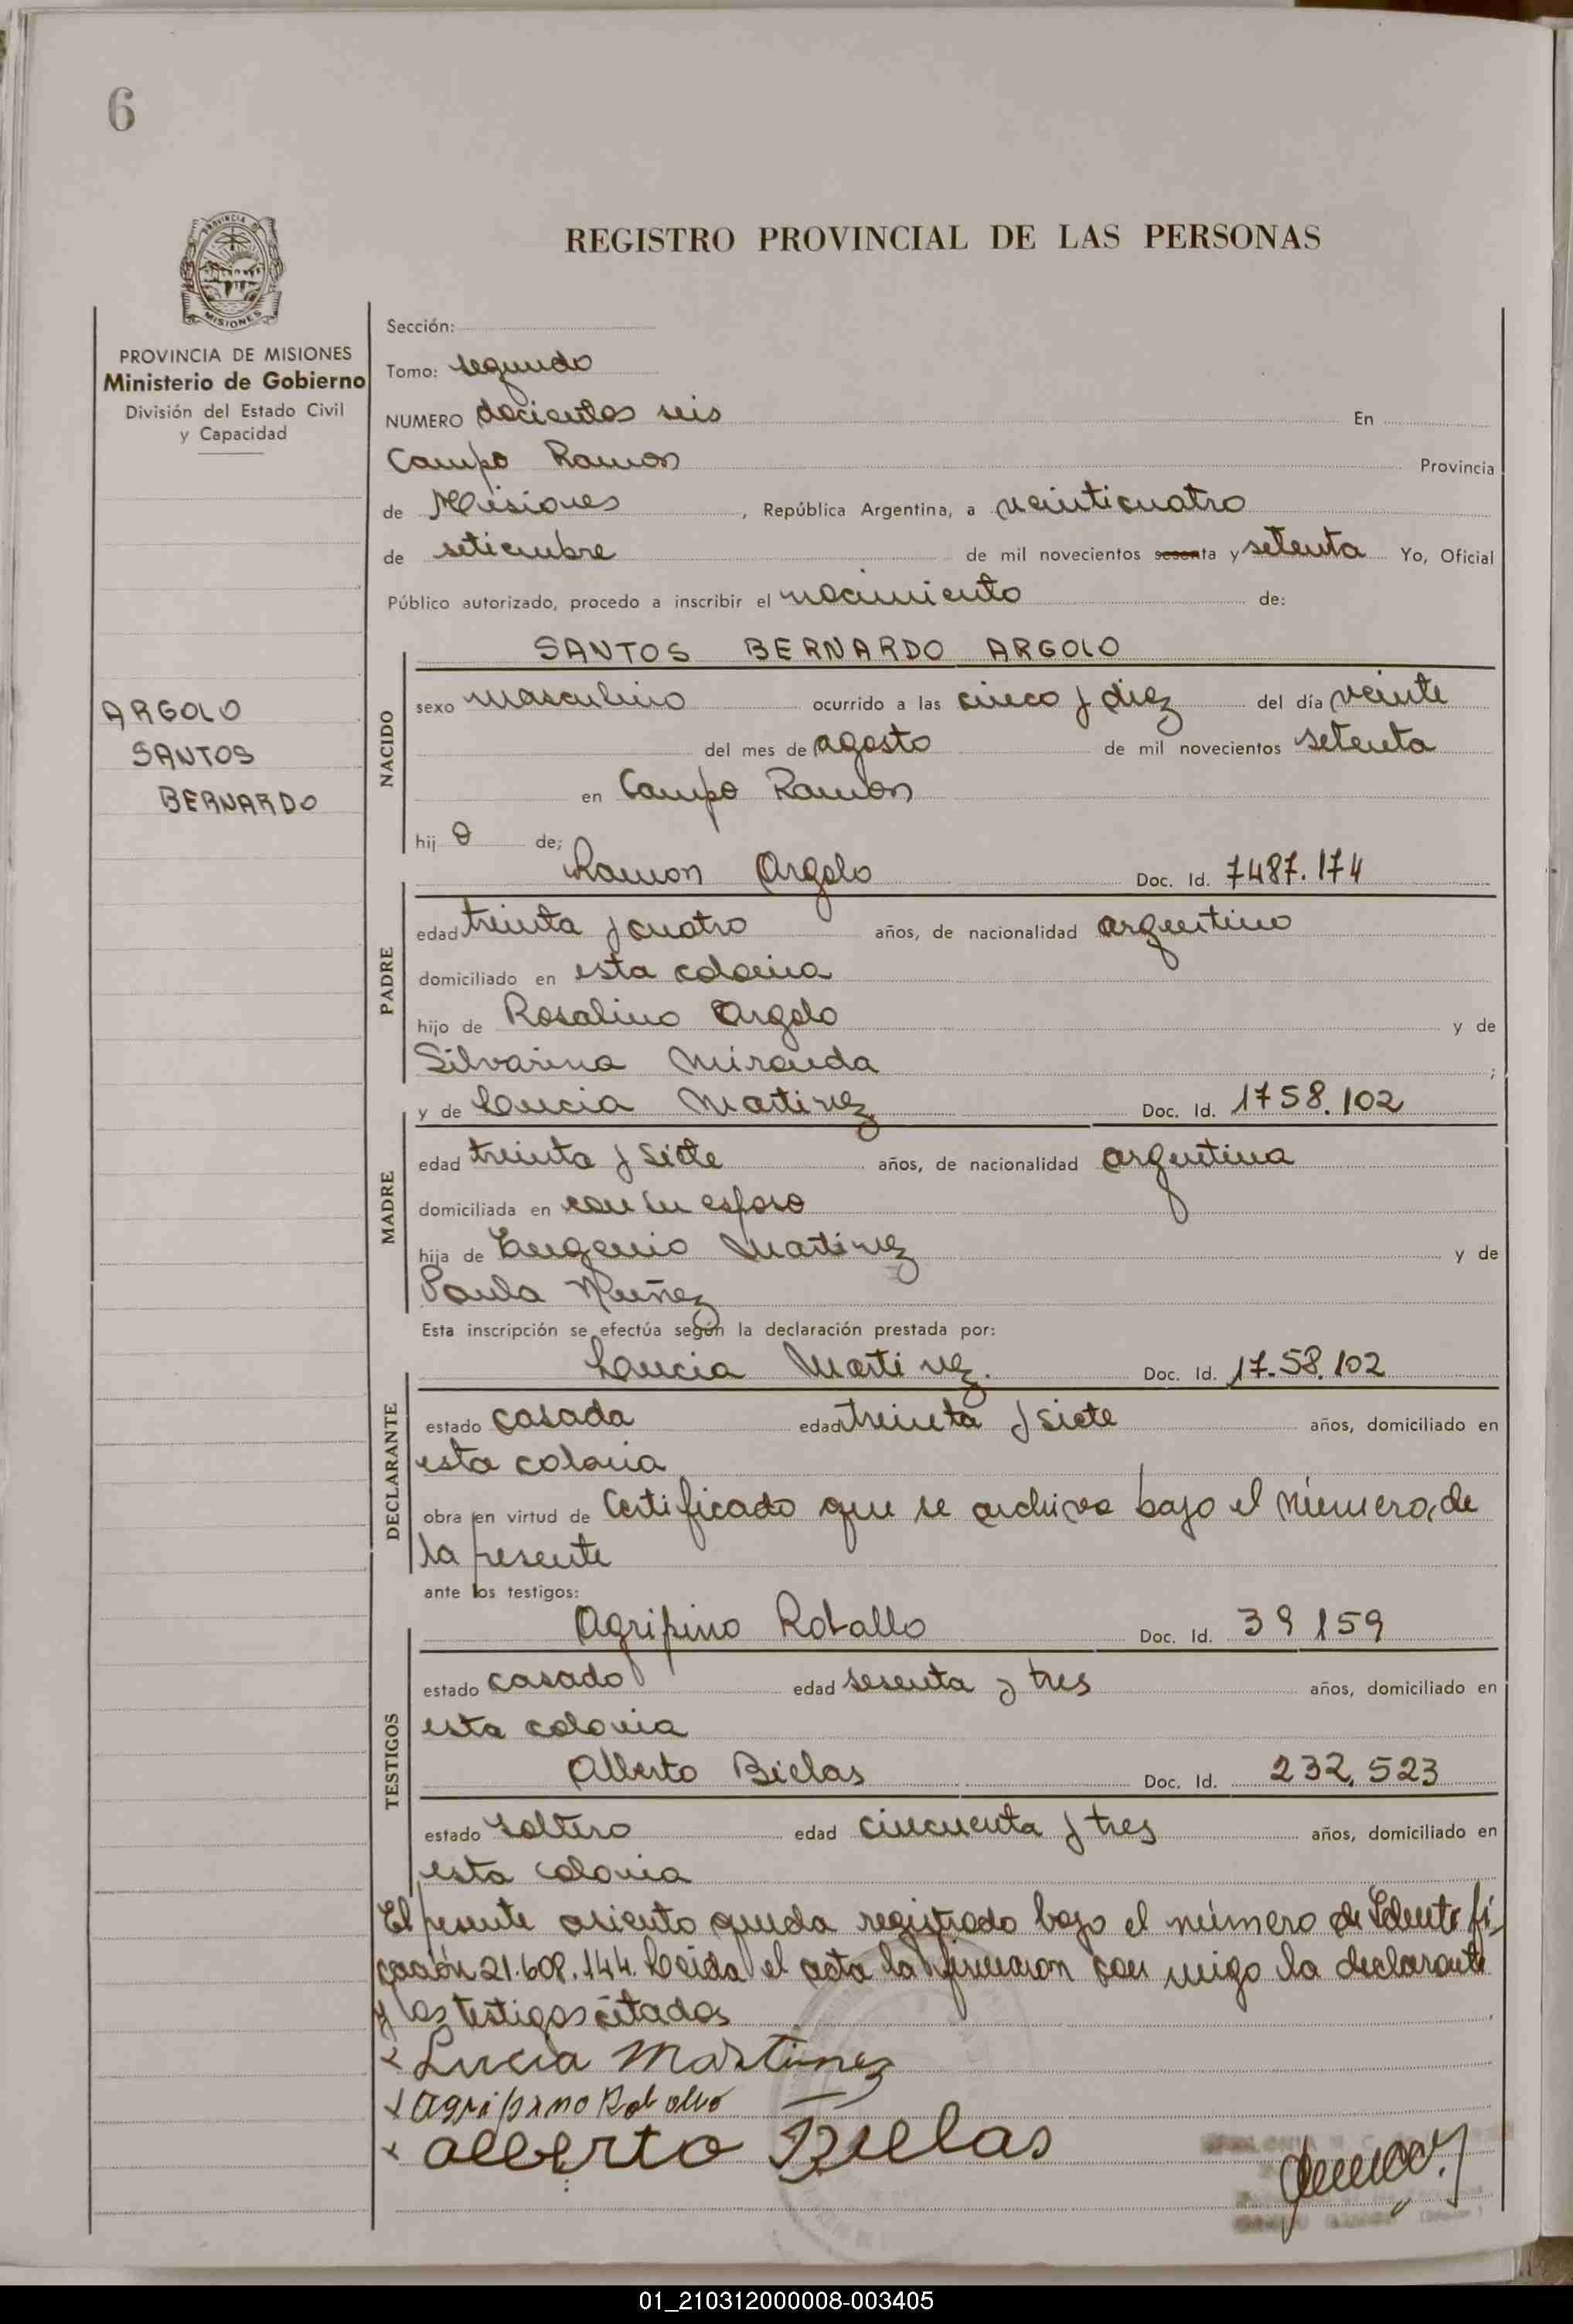 6
PROVINCIA DE
MISIONES
REGISTRO PROVINCIAL DE LAS PERSONAS
PROVINCIA DE MISIONES
Ministerio de Gobierno
División del Estado Civil
y Capacidad
ARGOLO
SANTOS
BERNARDO
Sección:
Tomo: segundo
NUMERO docientos seis En
Campo Ramon Provincia
de Misiones, República Argentina, a veinticuatro
de setiembre de mil novecientos sesenta y setenta Yo, Oficial
Público autorizado, procedo a inscribir el nacimiento de:
SANTOS BERNARDO ARGOLO
NACIDO
sexo masculino ocurrido a las cinco y diez del día veinte
del mes de agosto de mil novecientos setenta
en Campo Ramon
hij o de;
Ramon Argolo Doc. Id. 7487.174
PADRE
edad treinta y cuatro años, de nacionalidad argentino
domiciliado en esta colonia
hijo de Rosalino Argolo y de
Silvarina Miranda ;
y de Lucia Martinez Doc. Id. 1758.102
MADRE
edad treinta y siete años, de nacionalidad argentina
domiciliada en con su esposo
hija de Eugenio Martinez y de
Paula Nuñez
Esta inscripción se efectúa según la declaración prestada por:
Lucia Martinez. Doc. Id. 17.58.102
DECLARANTE
estado casada edad treinta y siete años, domiciliado en
esta colonia
obra en virtud de Certificado que se archiva bajo el número, de
la presente
ante los testigos:
Agripino Roballo Doc. Id. 39159
TESTIGOS
estado casado edad sesenta y tres años, domiciliado en
esta colonia
Alberto Bielas Doc. Id. 232.523
estado soltero edad cincuenta y tres años, domiciliado en
esta colonia
El presente asiento queda registrado bajo el número de Identifi-
cación 21.608.144. Leida el acta la firmaron con migo la declarante
y los testigos citados
x Lucia Martinez
x Agripino Roballo
x alberto Bielas
01_210312000008-003405